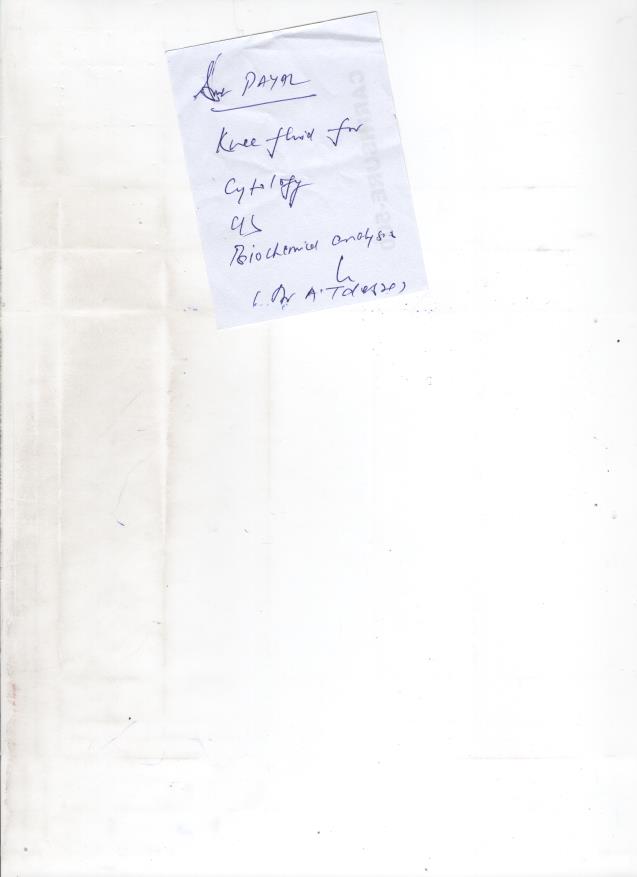 PAYAL
Knee fluid for
Cytology
C/S
Biochemical analysis
(Dr A.